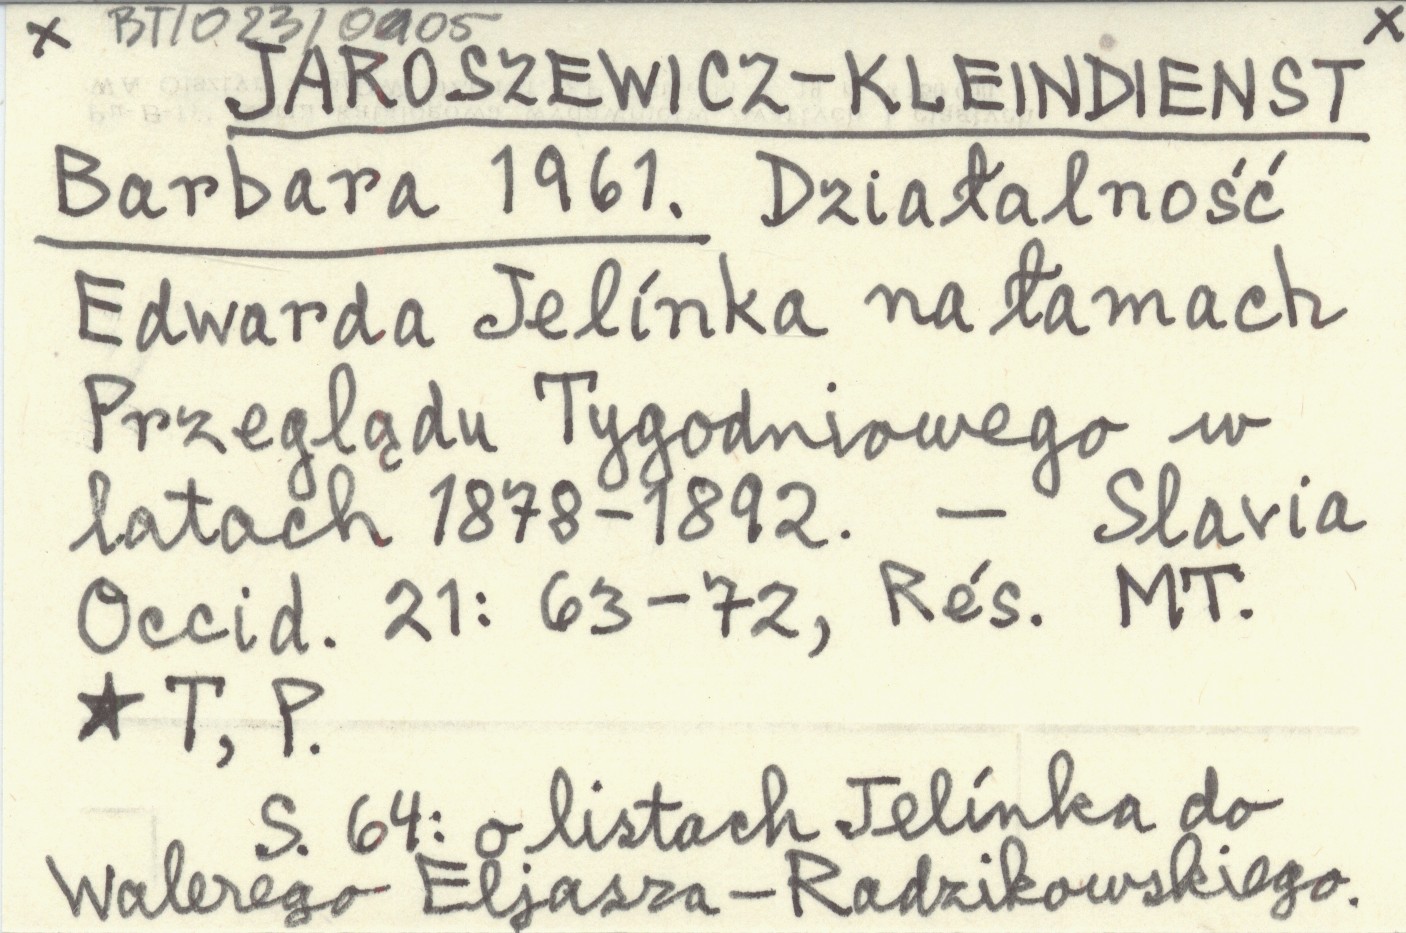 x BT/023/0005 x
JAROSZEWICZ-KLEINDIENST
Barbara 1961. Działalność
Edwarda Jelínka na łamach
Przeglądu Tygodniowego w
latach 1878-1892. — Slavia
Occid. 21: 63-72, Rés. MT.
★ T, P.
S. 64: o listach Jelínka do
Walerego Eljasza-Radzikowskiego.